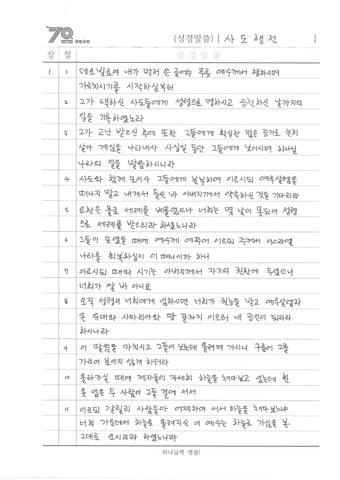 70 과천교회
(성경말씀) [ 사도행전 ]
장 절 성경말씀
1 1 데오빌로여 내가 먼저 쓴 글에는 무릇 예수께서 행하시며
가르치시기를 시작하심부터
2 그가 택하신 사도들에게 성령으로 명하시고 승천하신 날까지의
일을 기록하였노라
3 그가 고난 받으신 후에 또한 그들에게 확실한 많은 증거로 친히
살아 계심을 나타내사 사십일 동안 그들에게 보이시며 하나님
나라의 일을 말씀하시니라
4 사도와 함께 모이사 그들에게 분부하여 이르시되 예루살렘을
떠나지 말고 내게서 들은 바 아버지께서 약속하신 것을 기다리라
5 요한은 물로 세례를 베풀었으나 너희는 몇 날이 못되어 성령
으로 세례를 받으리라 하셨느니라
6 그들이 모였을 때에 예수께 여쭈어 이르되 주께서 이스라엘
나라를 회복하심이 이 때니이까 하니
7 이르시되 때와 시기는 아버지께서 자기의 권한에 두셨으니
너희가 알 바 아니요
8 오직 성령이 너희에게 임하시면 너희가 권능을 받고 예루살렘과
온 유대와 사마리아와 땅 끝까지 이르러 내 증인이 되리라
하시니라
9 이 말씀을 마치시고 그들이 보는데 올려져 가시니 구름이 그를
가리어 보이지 않게 하더라
10 올라가실 때에 제자들이 자세히 하늘을 쳐다보고 있는데 흰
옷 입은 두 사람이 그들 곁에 서서
11 이르되 갈릴리 사람들아 어찌하여 서서 하늘을 쳐다보느냐
너희 가운데서 하늘로 올려지신 이 예수는 하늘로 가심을 본
그대로 오시리라 하였느니라
하나님께 영광!